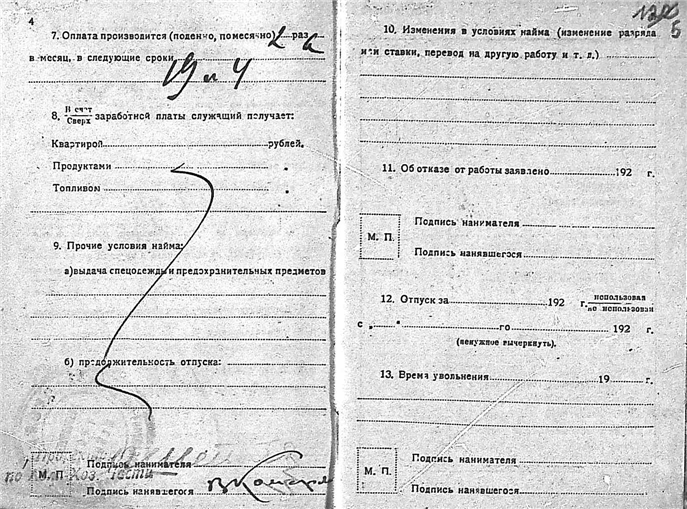 4
7. Оплата производится (поденно, помесячно) 2 раза
в месяц, в следующие сроки 19 и 4
8. В счет
Сверх заработной платы служащий получает:
Квартирой рублей.
Продуктами "
Топливом "
9. Прочие условия найма:
а) выдача спецодежды и предохранительных предметов
б) продолжительность отпуска:
М. П.
Подпись нанимателя
по Хоз. Части
Подпись нанявшегося
5
10. Изменения в условиях найма (изменение разряда
или ставки, перевод на другую работу и т. л.)
11. Об отказе от работы заявлено 192 г.
М. П.
Подпись нанимателя
Подпись нанявшегося
12. Отпуск за 192 г. использован
не использован
с „ “ го 192 г.
(ненужное вычеркнуть).
13. Время увольнения 19 г.
М. П.
Подпись нанимателя
Подпись нанявшегося